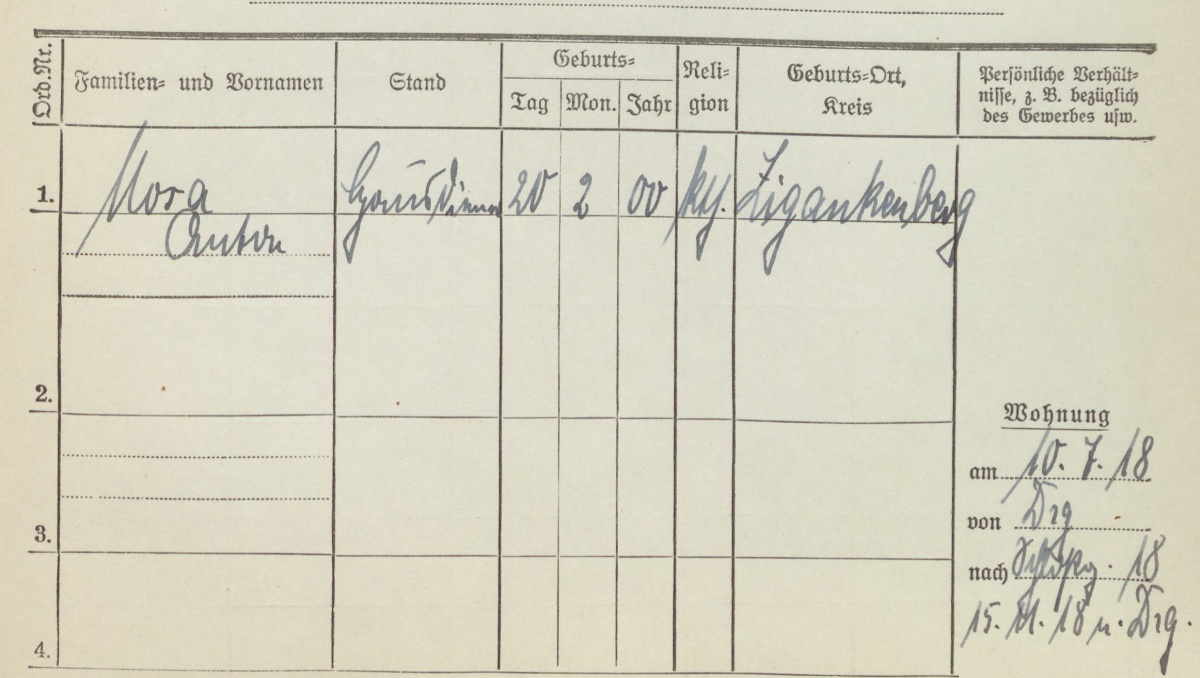 Ord.Nr.
Familien- und Vornamen
Stand
Geburts-
Tag
Mon.
Jahr
Reli-
gion
Geburts-Ort,
Kreis
Persönliche Verhält-
nisse, z. B. bezüglich
des Gewerbes usw.
1.
Mora
Anton
Hausdiener
20
2
00
kth.
Zigankenberg
2.
3.
4.
Wohnung
am 10. 7. 18
von Dzg
nach 18
15. 11. 18 n. Dzg.